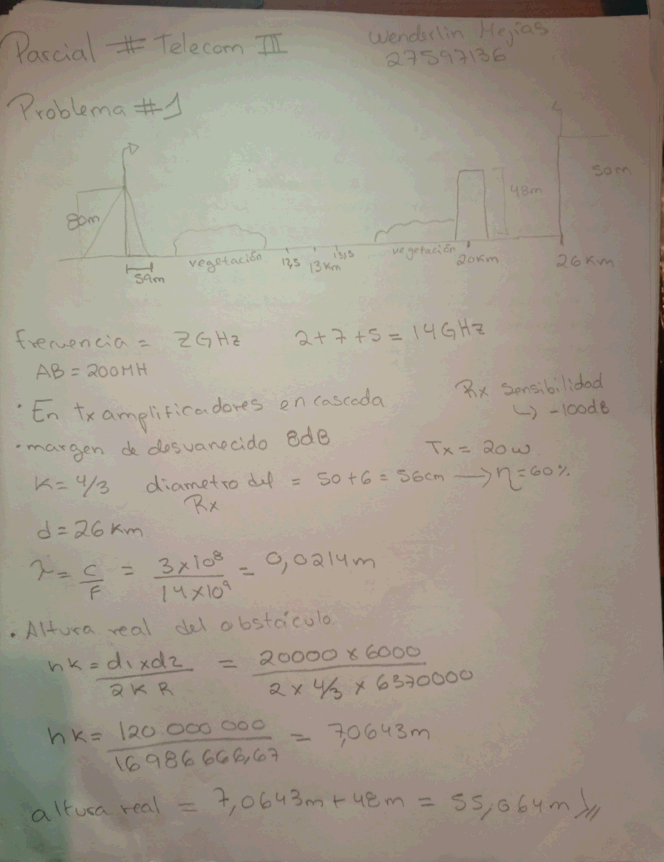 Parcial # Telecom III
Wenderlin Mejías
27597136
Problema #1
80m
54m
vegetación
12,5
13Km
13,5
vegetación
20Km
48m
50m
26Km
frecuencia = ZGHz 2+7+5 = 14GHz
AB = 200MH
· En tx amplificadores en cascada
Rx sensibilidad
↳ -100dB
· margen de desvanecido 8dB
Tx = 20w
K = 4/3 diametro del = 50+6 = 56cm → η=60%
Rx
d = 26 Km
λ = C/F = 3x10⁸/14x10⁹ = 0,0214m
· Altura real del obstáculo
hK = d1xd2/2KR = 20000 x 6000/2 x 4/3 x 6370000
hK = 120 000 000/16 986 666,67 = 7,0643m
altura real = 7,0643m + 48m = 55,064m